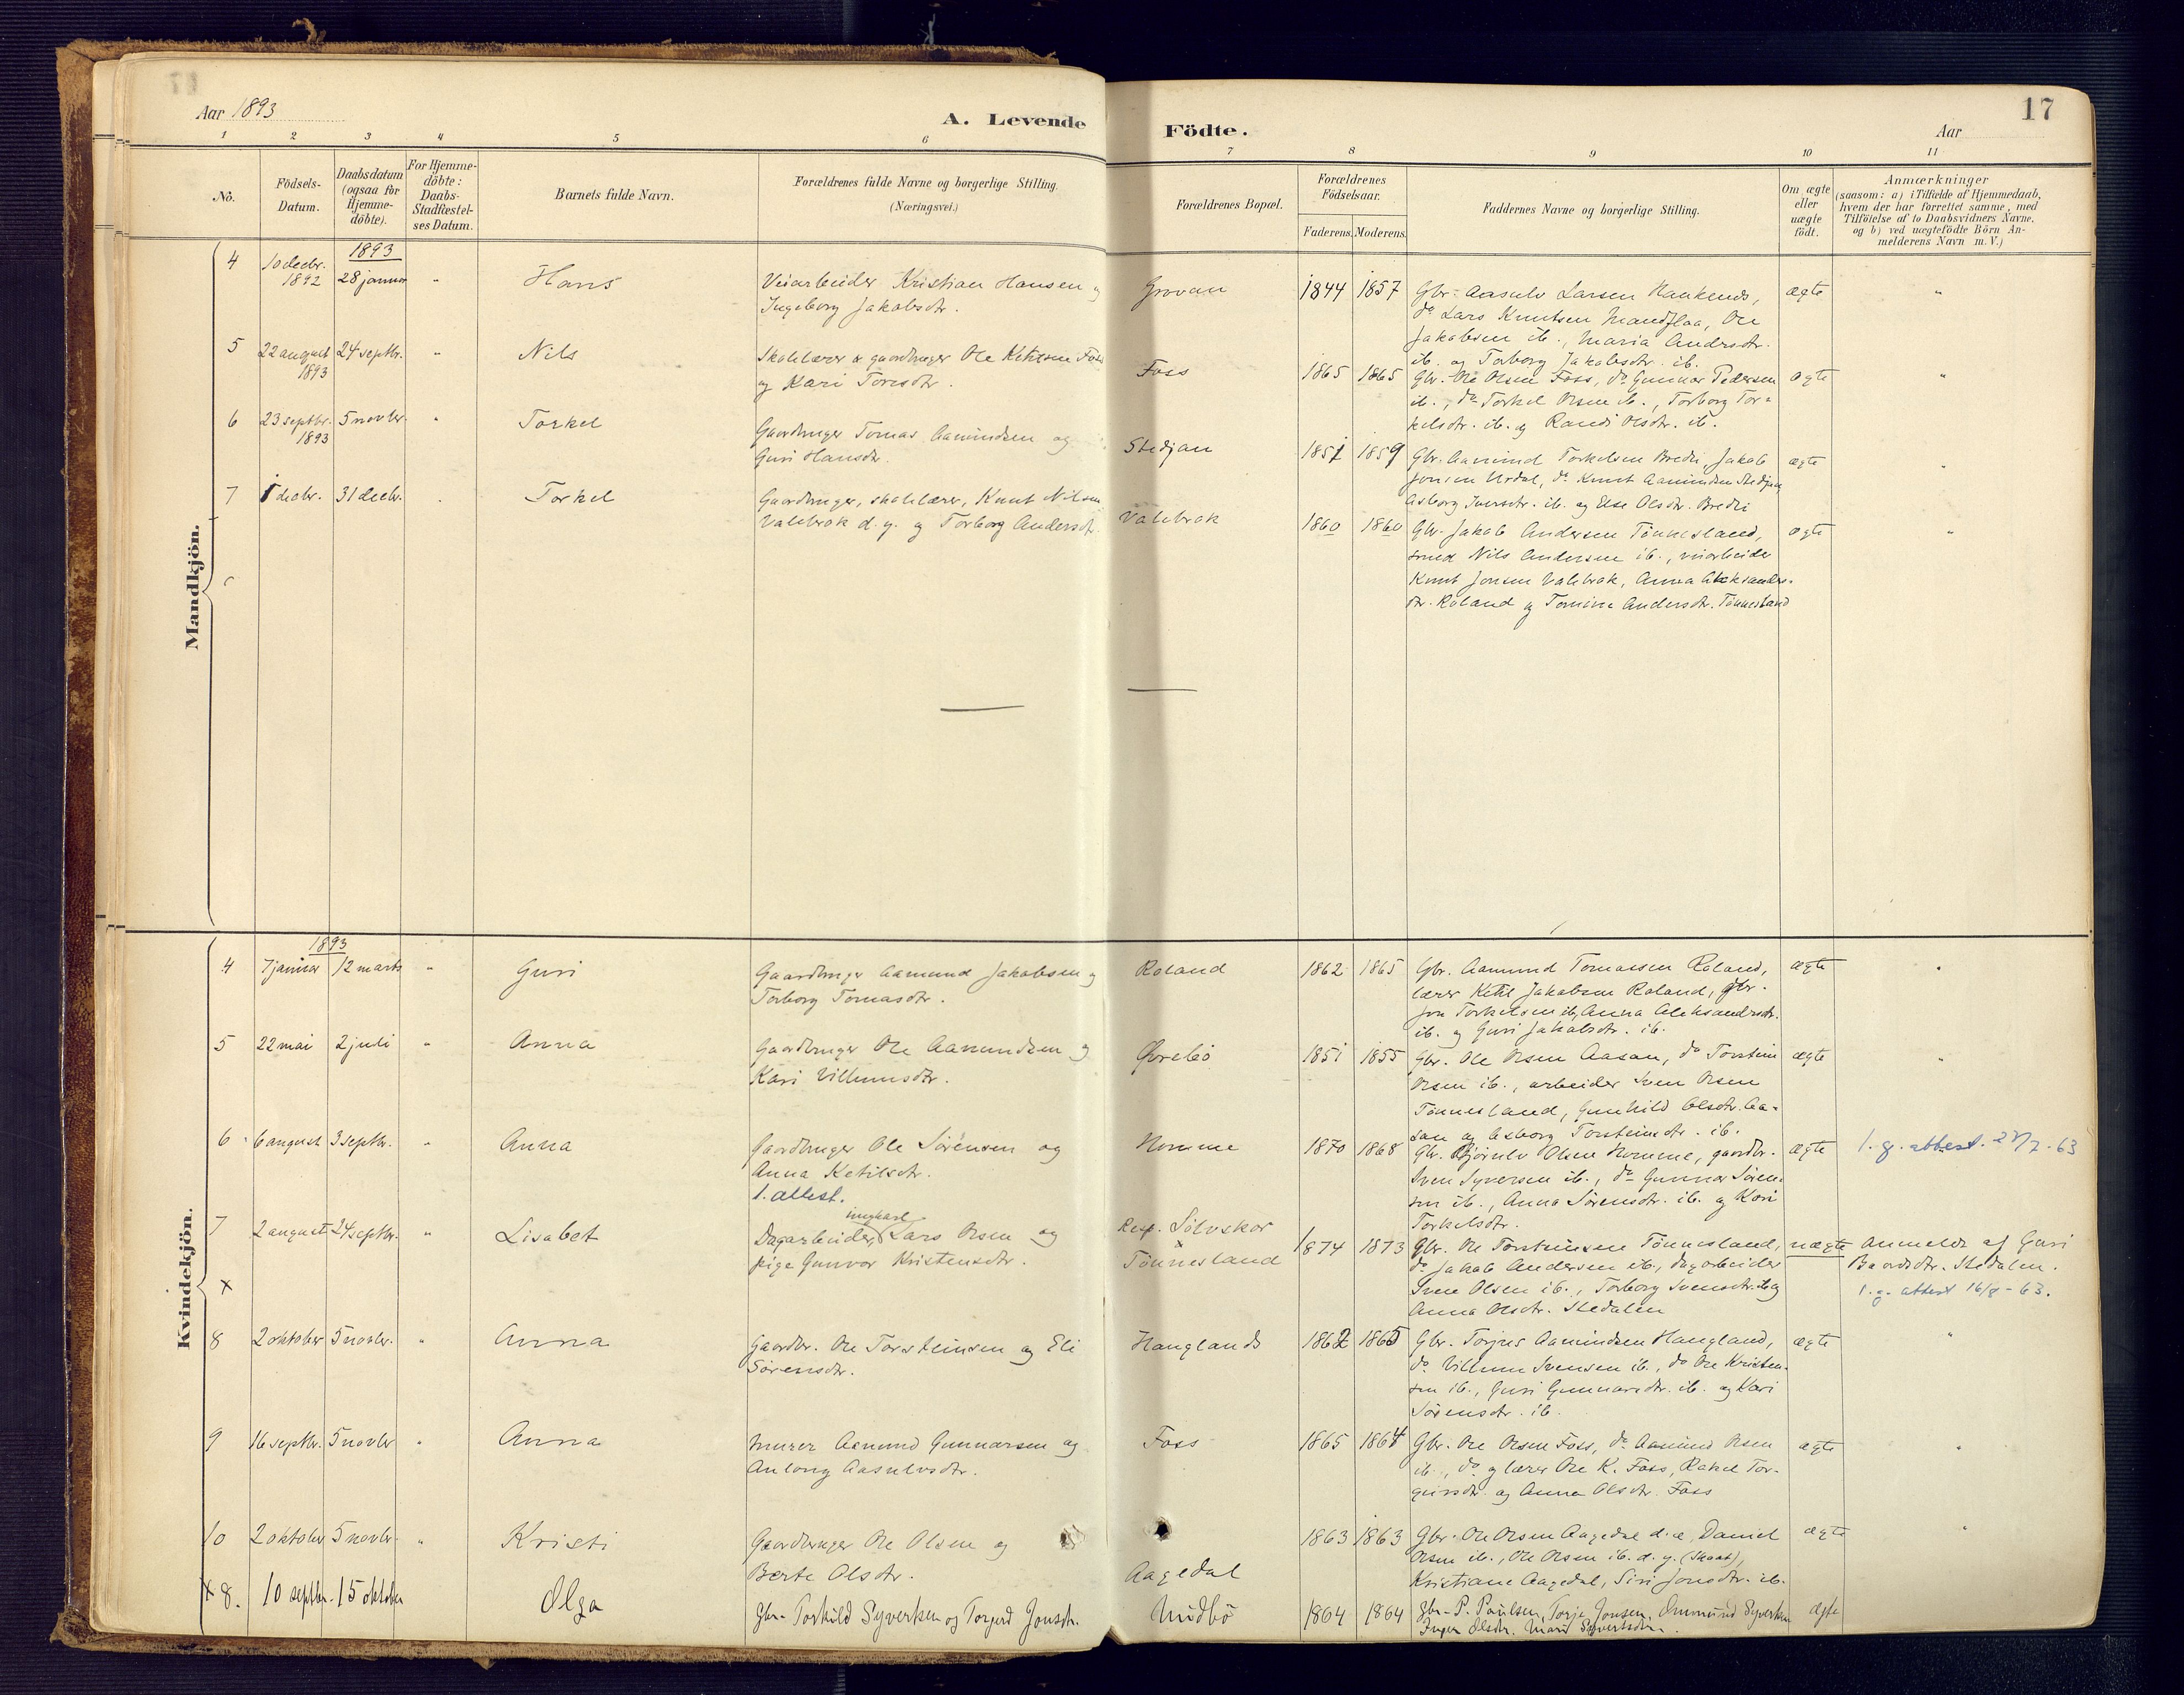 Aar 1893
A. Levende Födte.
Aar
17
1 2 3 4 5 6 7 8 9 10 11
No.
Födsels-Datum.
Daabsdatum (ogsaa for Hjemme-döbte).
For Hjemme-döbte: Daabs-Stadfæstel-ses Datum.
Barnets fulde Navn.
Forældrenes fulde Navne og borgerlige Stilling. (Næringsvei.)
Forældrenes Bopæl.
Forældrenes Födselsaar.
Faderens. Moderens.
Faddernes Navne og borgerlige Stilling.
Om ægte eller uægte födt.
Anmærkninger
(saasom: a) i Tilfælde af Hjemmedaab,
hvem der har forrettet samme, med
Tilföielse af to Daabsvidners Navne,
og b) ved uægtefödte Börn An-
melderens Navn m. V.)
Mandkjön.
1893
4 10 decbr. 1892 28 januar " Hans
Veiarbeider Kristian Hansen og
Ingeborg Jakobsdtr.
Grovan 1844 1857
Gbr. Aasulv Larsen Haukends,
do Lars Knutsen Mandflaa, Ole
Jakobsen ib., Maria Andersdtr.
ib. og Torborg Jakobsdtr. ib.
ægte "
5 22 august 1893 24 septbr. " Nils
Skolelærer & gaardbruger Ole Ketilsen Foss
og Kari Toresdtr.
Foss 1865 1865
Gbr. Ole Olsen Foss, do Gunnar Pedersen
ib., do Torkel Olsen ib., Torborg Tor-
kelsdtr. ib. og Randi Olsdtr. ib.
ægte "
6 23 septbr. 1893 5 novbr. " Torkel
Gaardbruger Tomas Aamundsen og
Guri Hansdtr.
Stedjan 1851 1859
Gbr. Aamund Torkelsen Bredli, Jakob
Jonsen Urdal, do Knut Aamundsen Stedjan,
Asborg Iversdtr. ib. og Else Olsdtr. Bredli
ægte "
7 5 decbr. 31 decbr. " Torkel
Gaardbruger, skolelærer, Knut Nilsen
Valebrok d.y. og Torborg Andersdtr.
Valebrok 1860 1860
Gbr. Jakob Andersen Tønnesland,
smed Nils Andersen ib., veiarbeider
Knut Jonsen Valebrok, Anna Aleksanders-
dtr. Roland og Tomine Andersdtr. Tønnesland
ægte "
Kvindekjön.
1893
4 7 januar 12 marts " Guri
Gaardbruger Aamund Jakobsen og
Torborg Tomasdtr.
Roland 1862 1865
Gbr. Aamund Tomassen Roland,
lærer Ketil Jakobsen Roland, gbr.
Jon Torkelsen ib, Anna Aleksandersdtr.
ib. og Guri Jakobsdtr. ib.
ægte "
5 22 mai 2 juli " Anna
Gaardbruger Ole Aamundsen og
Kari Villumsdtr.
Øvrebø 1851 1855
Gbr. Ole Olsen Aasan, do Torstein
Olsen ib., arbeider Sven Olsen
Tønnesland, Gunhild Olsdtr. Aa-
san og Asborg Torsteinsdtr. ib.
ægte "
6 6 august 3 septbr. " Anna
Gaardbruger Ole Sørensen og
Anna Ketilsdtr.
1. attest.
Homme 1870 1868
Gbr. Bjørnulv Olsen Homme, gaardbr.
Sven Syversen ib., do Gunnar Søren-
sen ib., Anna Sørensdtr. ib. og Kari
Torkelsdtr.
ægte 1. g. attest. 27/7-63
7 2 august 24 septbr. " Lisabet
ungkarl
Dagarbeider Lars Olsen og
pige Gunvor Kristensdtr.
Resp. Sølvskor
x
Tønnesland 1874 1873
Gbr. Ole Torsteinsen Tønnesland,
do Jakob Andersen ib., dagarbeider
Sven Olsen ib., Torborg Svensdtr. ib. og
Anna Olsdtr. Stedalen
uægte Anmeldt af Guri
Baardsdtr. Stedalen.
1. g. attest 16/8-63.
x
8 2 oktober 5 novbr. " Anna
Gaardbr. Ole Torsteinsen og Eli
Sørensdtr.
Hauglands 1862 1865
Gbr. Torjus Aamundsen Haugland,
do Villum Svensen ib., do Ole Kristen-
sen ib., Guri Gunnarsdtr. ib. og Kari
Sørensdtr. ib.
ægte "
9 16 septbr. 5 novbr " Anna
Murer Aamund Gunnarsen og
Anlaug Aasulvsdtr.
Foss 1865 1864
Gbr. Ole Olsen Foss, do Aamund Olsen
ib., do og lærer Ole K. Foss, Rakel Tor-
geirsdtr. og Anna Olsdtr. Foss
ægte "
10 2 oktober 5 novbr. " Kristi
Gaardbruger Ole Olsen og
Berte Olsdtr.
Aagedal 1863 1863
Gbr. Ole Olsen Aagedal d.æ, Daniel
Olsen ib., Ole Olsen ib. d.y. (Skaat),
Kristiane Aagedal, Siri Jonsdtr. ib.
ægte "
x 8. 10 septbr. 15 oktober Olga
Gbr. Torkild Syvertsen og Torgerd Jonsdtr.
Midbø 1864 1864
Gbr. P. Paulsen, Torje Jonsen, Ommund Syvertsen
Inger Olsdtr. Mari Syvertsdtr.
ægte